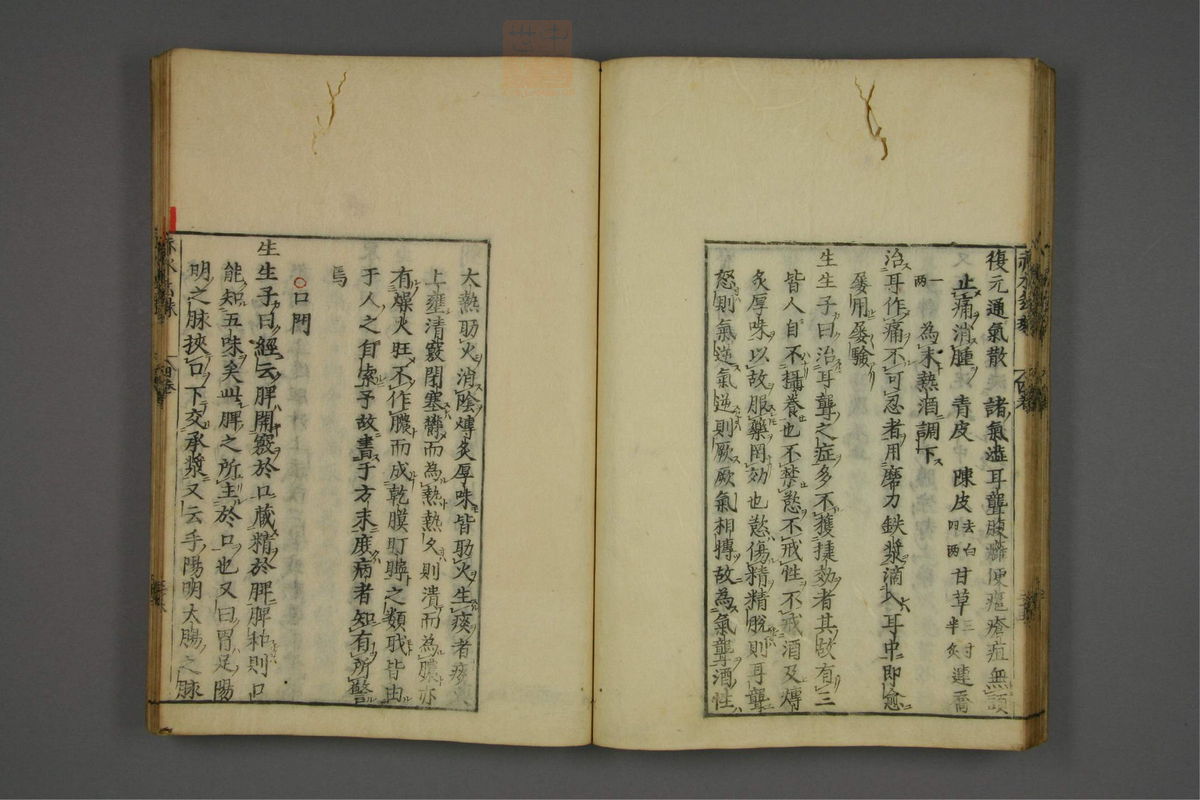 復元通氣散 諸氣澁耳聾腹癰便癰瘡疽無頭
止痛消腫 青皮 陳皮去白四兩 甘草三寸半炙 連喬
一兩 為末熱酒調下
治耳作痛不可忍者用磨刀鉄漿滴入耳中即愈
屡用屡驗
生生子曰治耳聾之症多不獲捷効者其故有三
皆人自不攝養也不禁慾不戒性不戒酒及煿
炙厚味以故服藥罔効也慾傷精精脱則耳聾
怒則氣逆氣逆則厥厥氣相摶故為氣聾酒性
大熱助火消陰煿炙厚味皆助火生痰者痰火
上壅清竅閉塞鬱而為熱熱久則潰而為膿亦
有燥火旺不作膿而成乾膜耵聹之類哉皆由
于人之自索予故書于方末庶病者知有所警
焉
○口門
生生子曰經云脾開竅於口藏精於脾脾和則口
能知五味矣此脾之所主於口也又曰胃足陽
明之脉挾口下交承漿又云手陽明大腸之脉
四卷